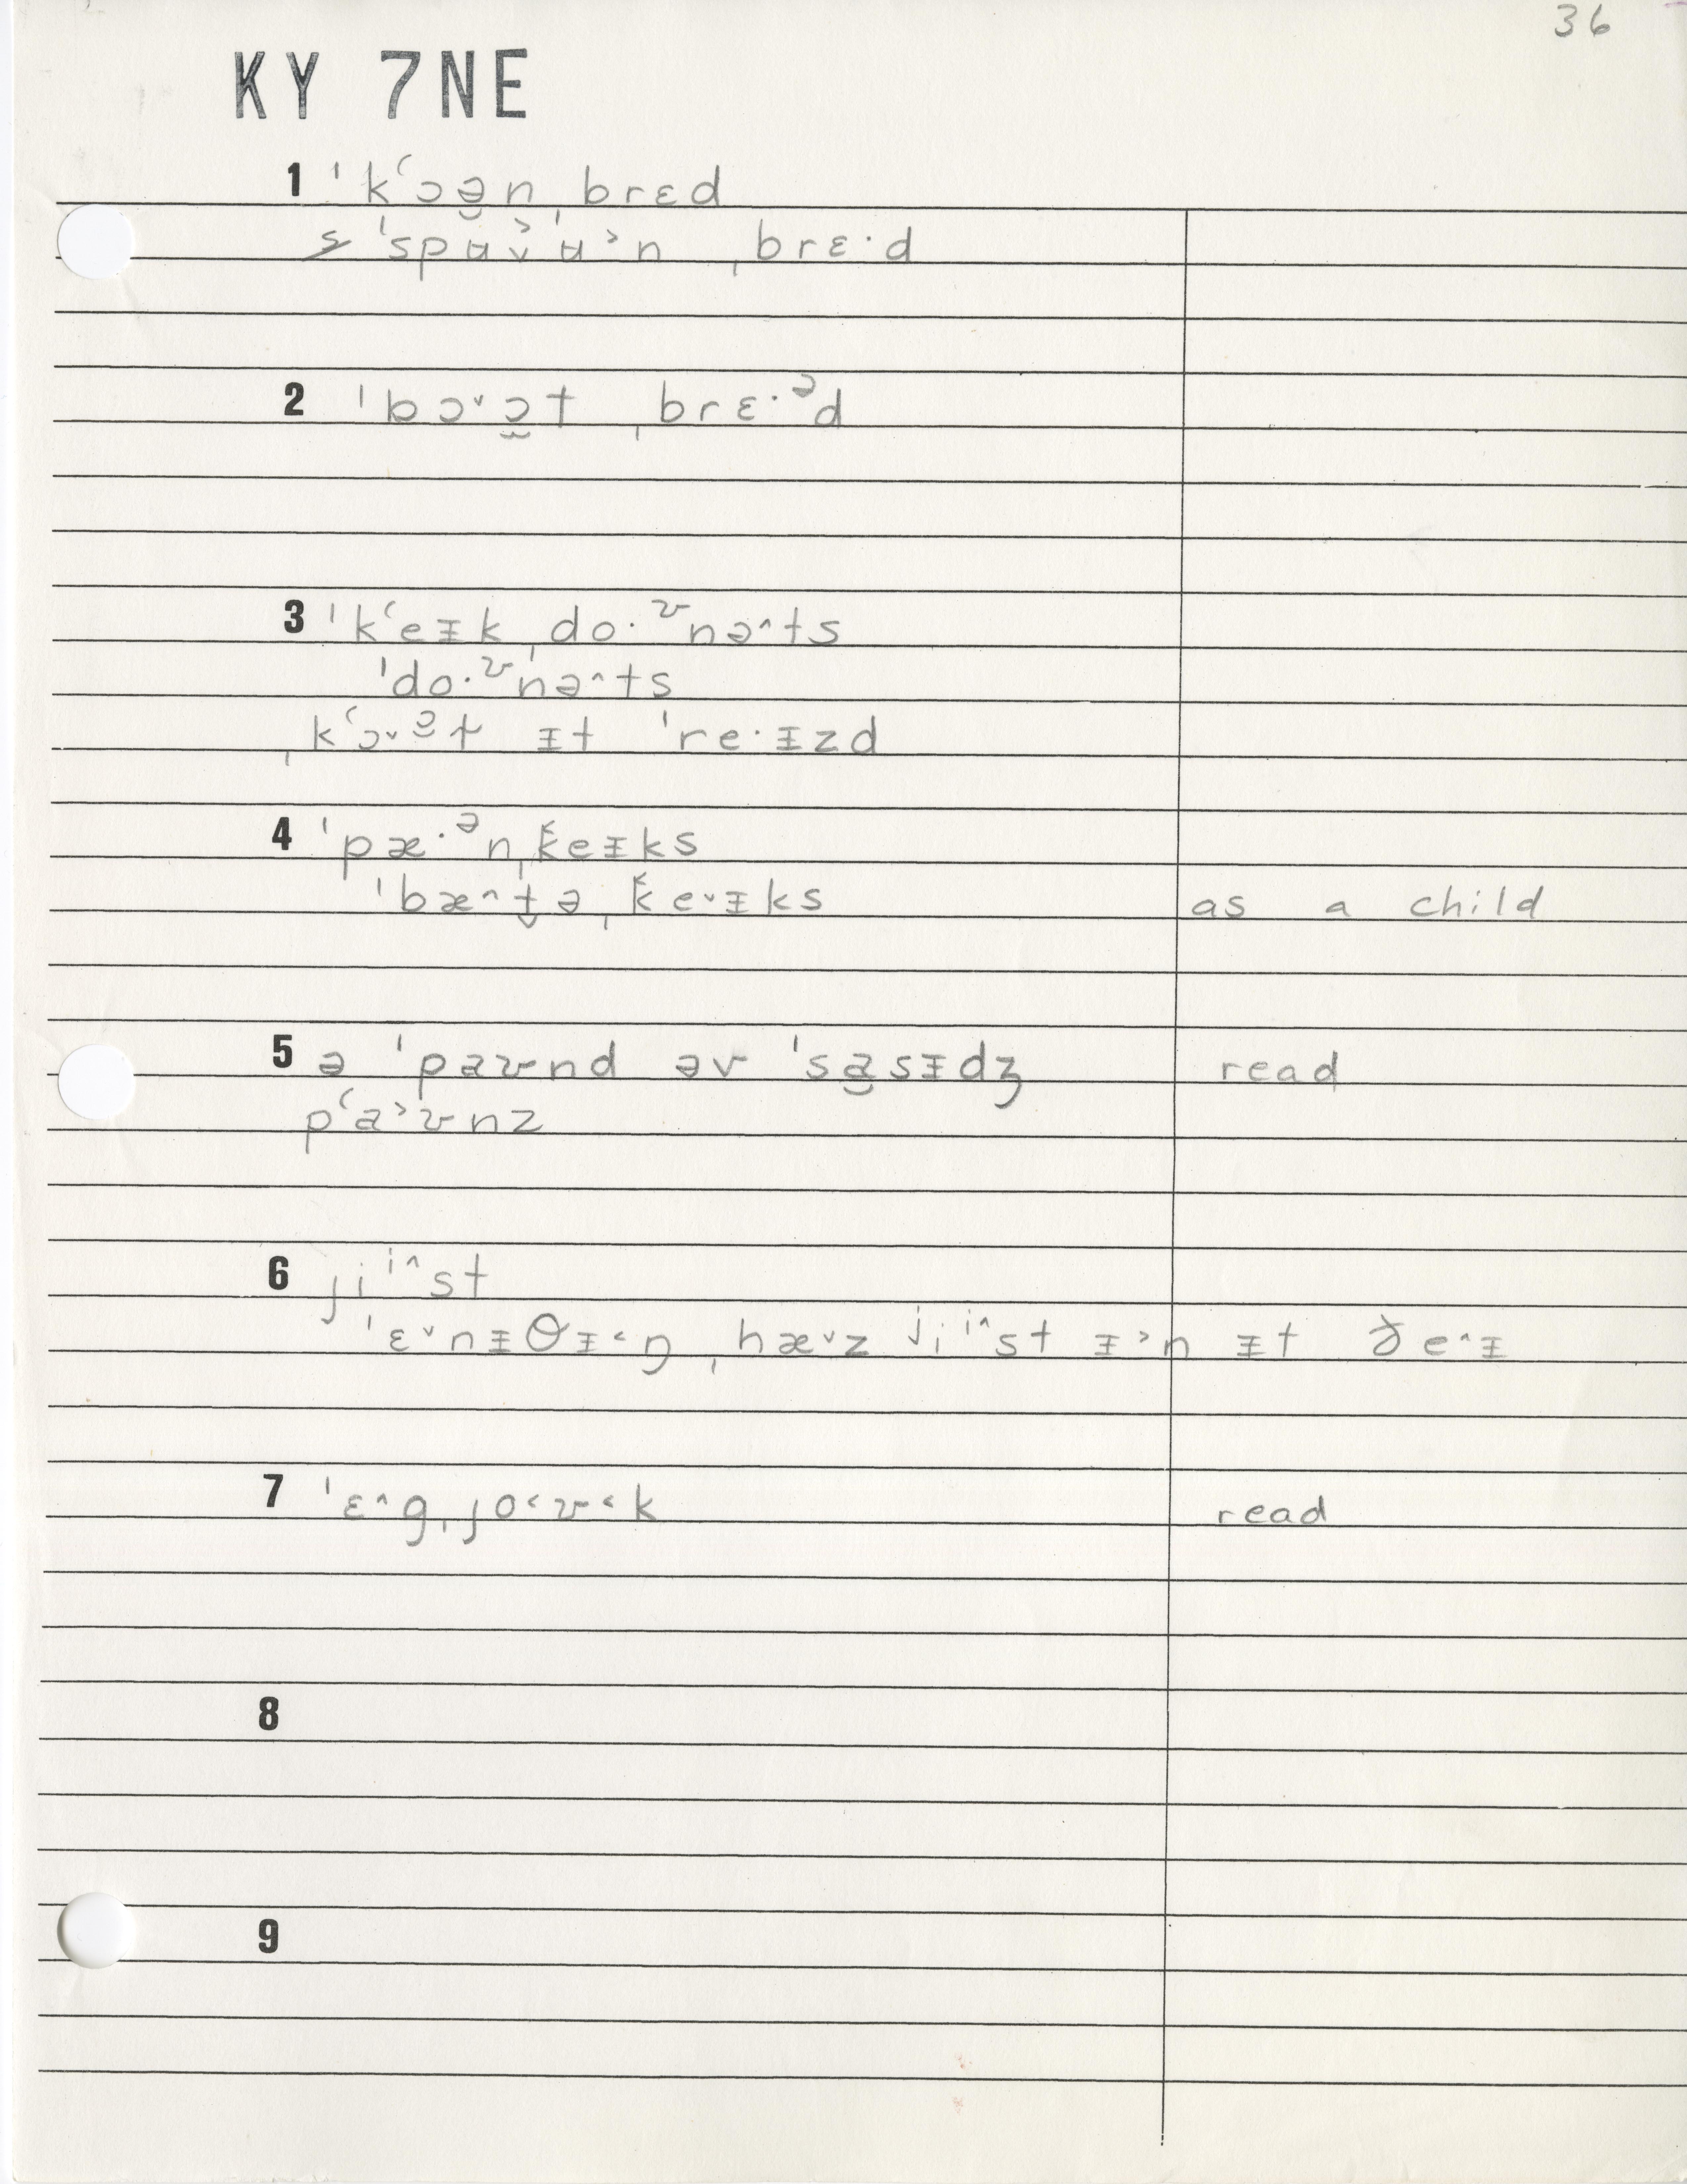 36
KY 7NE
1 ˈkʻɔə̯n ˌbrɛd
s ˈspʉ˅˃ʉ˃n ˌbrɛ·d
2 ˈbɔ˅ɔ̯t ˌbrɛ·ᵊd
3 ˈkʻeᵻk ˌdo·ᶷnə˄ts
ˈdo·ᶷnə˄ts
ˌkʻɔ˅ɔ̯t ᵻt ˈre·ᵻzd
4 ˈpæ·ᵊnˌkʻeᵻks
ˈbæ˄t̬əˌkʻe˅ᵻks as a child
5 ə ˈpaʊnd əv ˈsa̯sᵻdʒ read
pʻa˃ʊnz
6 jiⁱ˄st
ˈɛ˅nᵻθᵻ˂ŋ ˌhæ˅z jiⁱ˄st ᵻ˃n ᵻt ðe˄ᵻ
7 ˈɛ˄gˌjo˂ʊ˂k read
8
9